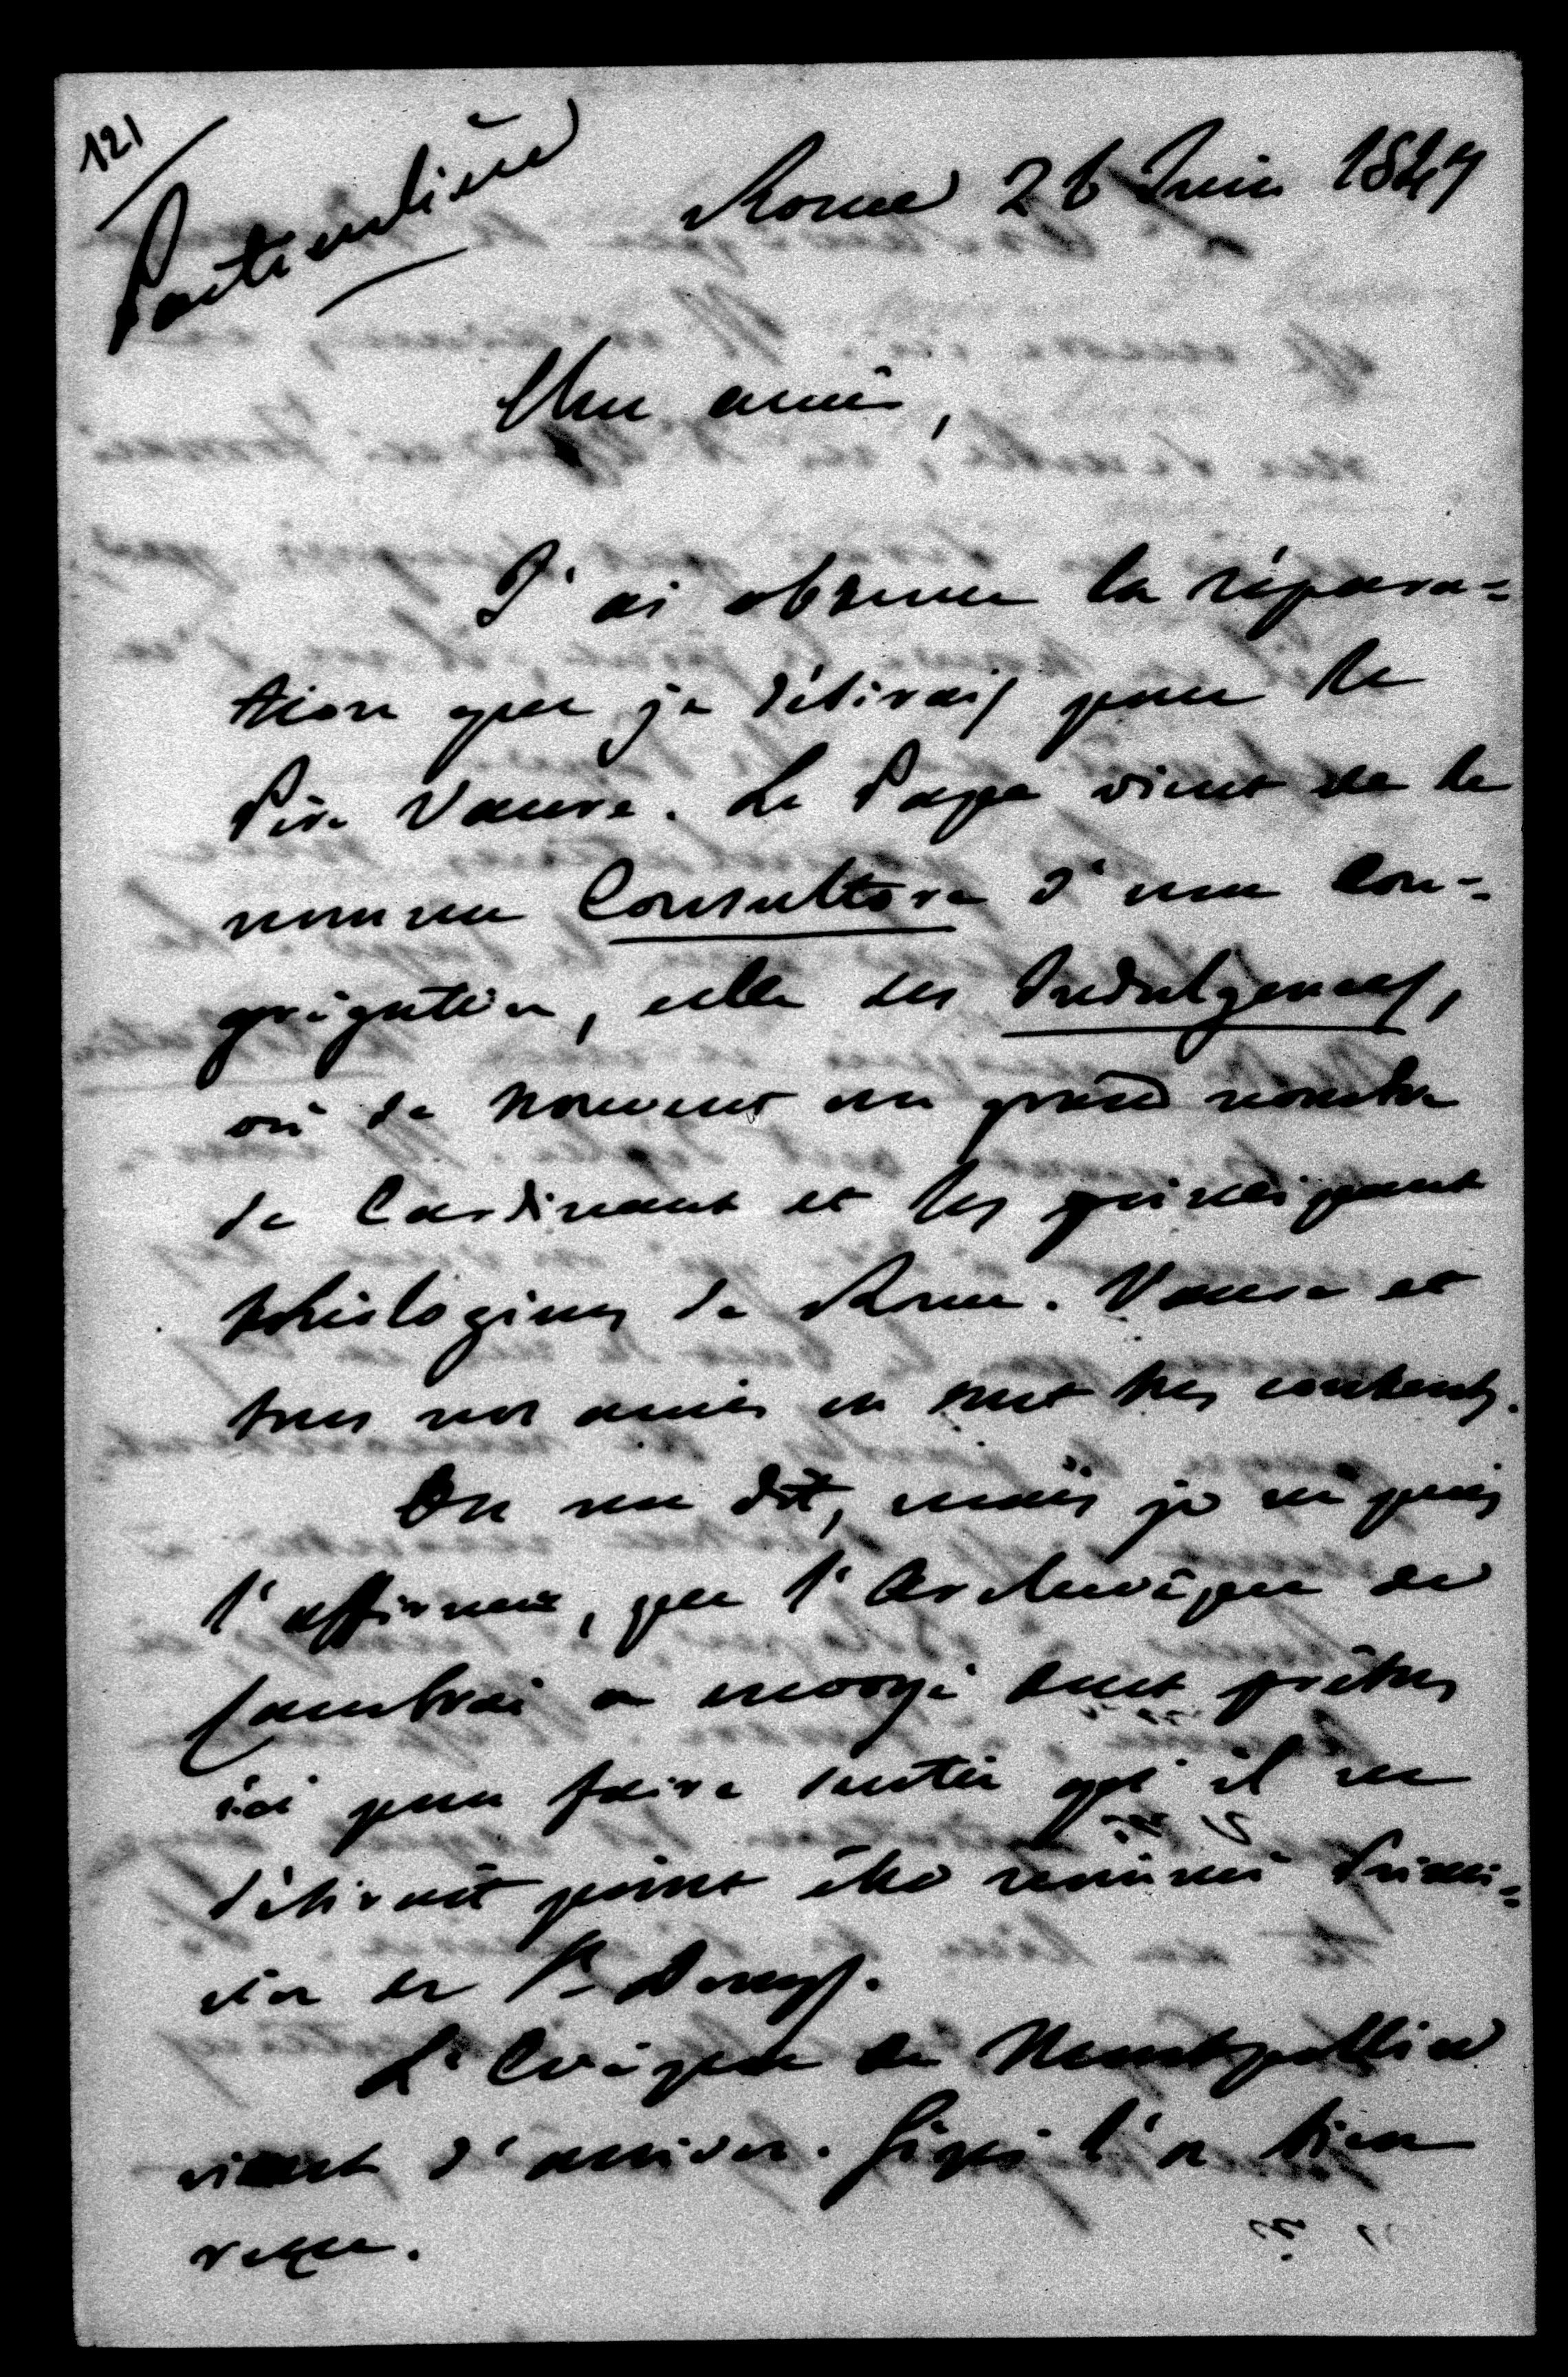 121
Particulière
Rome 26 Juin 1847
Mon ami,
J'ai obtenu la répara=
tion que je désirais pour le
Père Vaure. Le Pape vient de le
nommer Consultore d'une Con=
grégation, celle des Indulgences,
où se trouvent un grand nombre
de Cardinaux et les principaux
théologiens de Rome. Vaure et
tous nos amis en sont très contents.
On me dit, mais je ne puis
l'affirmer, que l'Archevêque de
Cambrai a envoyé deux prêtres
ici pour faire sentir qu'il ne
désirait point être nommé Primi=
cier de St Denys.
L'Evêque de Montpellier
vient d'arriver. Gizzi l'a bien
reçu.